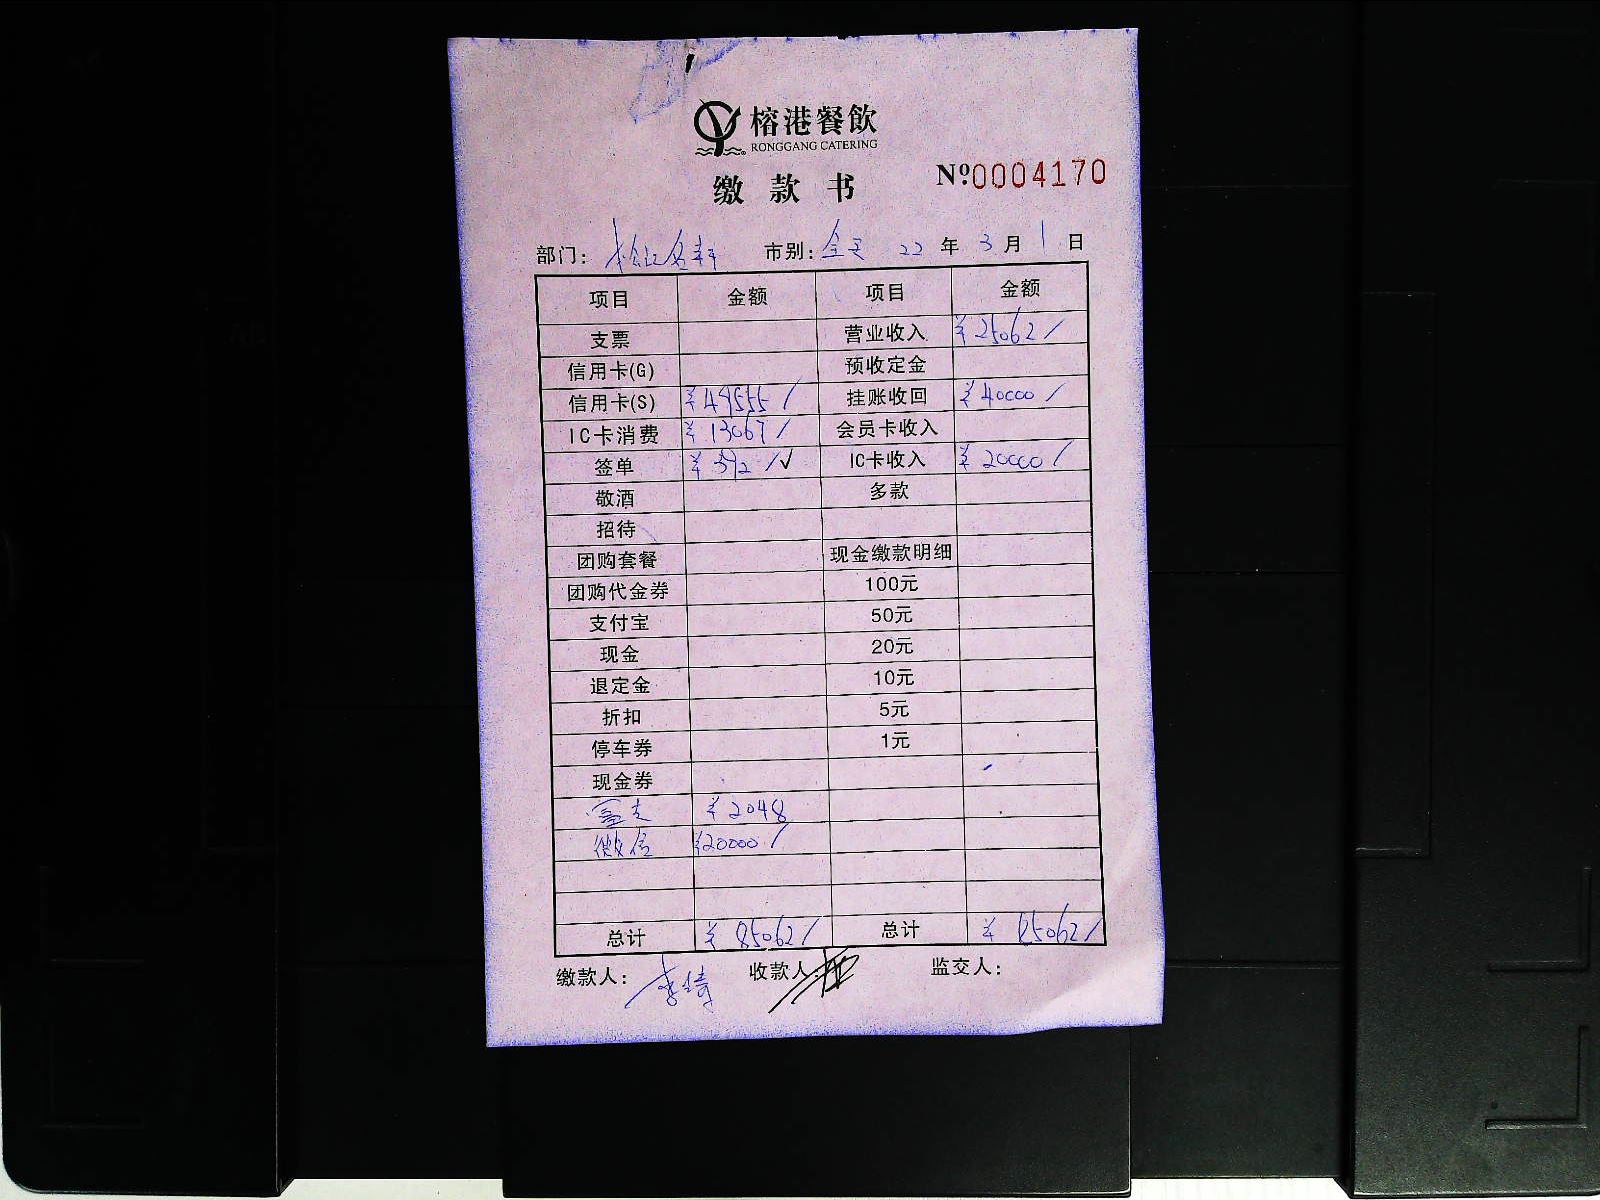 榕港餐飲
RONGGANG CATERING
缴款书 №0004170
部门: 市别: 全天 22 年 3 月 1 日
项目 金额 项目 金额
支票 营业收入 ¥25062/
信用卡(G) 预收定金
信用卡(S) ¥49555/ 挂账收回 ¥40000/
IC卡消费 ¥13067/ 会员卡收入
签单 ¥392/√ IC卡收入 ¥20000/
敬酒 多款
招待
团购套餐 现金缴款明细
团购代金券 100元
支付宝 50元
现金 20元
退定金 10元
折扣 5元
停车券 1元
现金券
¥2048
微信 ¥20000/
总计 ¥85062/ 总计 ¥85062/
缴款人: 收款人: 监交人: